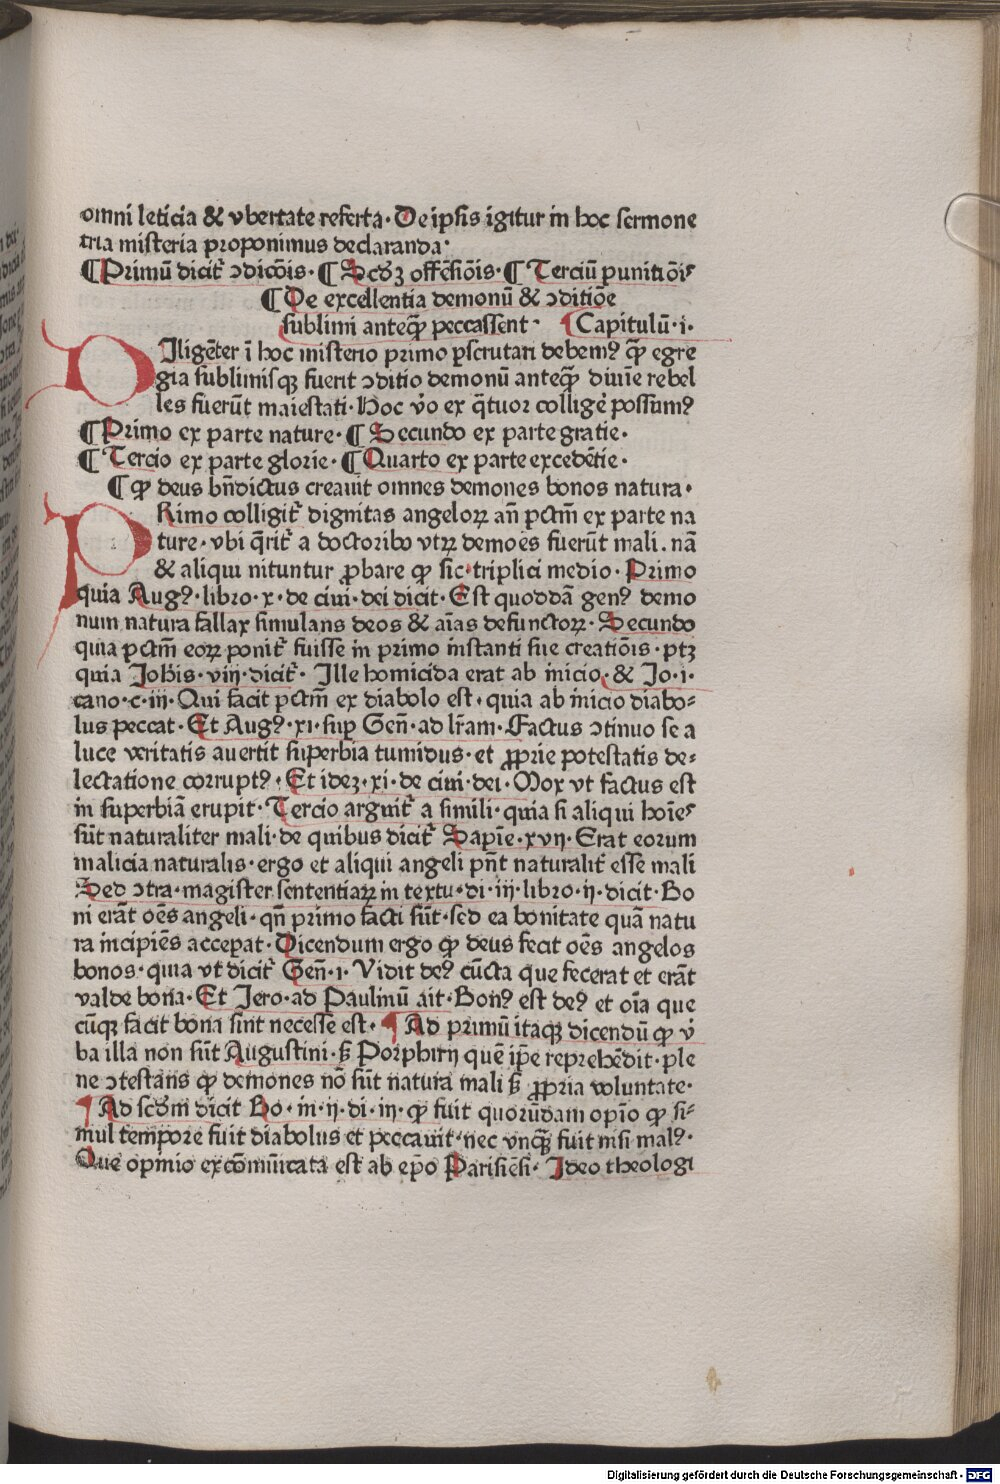 omni leticia & vbertate referta· De ipsis igitur in hoc sermone
tria misteria proponimus declaranda·
¶ Primū dicit᷑ ↄdicōis· ¶ Scd̄ʒ offēsiōis· ¶ Terciū punitiōis
¶ De excellentia demonū & ↄditiōe
sublimi anteq̄ꝫ peccassent· ¶ Capitulū·i·
DIligēter ī hoc misterio primo ꝑscrutari debemꝰ q̄ꝫ egre
gia sublimisqꝫ fuerit ↄditio demonū anteq̄ꝫ diuīe rebel
les fuerūt maiestati· Hoc v̊o ex q̄tuor colligeͬ possumꝰ
¶ Primo ex parte nature· ¶ Secundo ex parte gratie·
¶ Tercio ex parte glorie· ¶ Quarto ex parte excedētie·
¶ ꝙ deus bn̄dictus creauit omnes demones bonos natura·
PRimo colligit᷑ dignitas angeloꝝ an̄ pctm̄ ex parte na
ture· vbi q̄rit᷑ a doctoribꝰ vtꝝ demoēs fuerūt mali. nā
& aliqui nituntur ꝓbare ꝙ sic· triplici medio· Primo
quia Augꝰ· libro·x·de ciui·dei dicit· Est quoddā genꝰ demo
num natura fallax simulans deos & aīas defunctoꝝ· Secundo
quia pctm̄ eoꝝ ponit᷑ fuisse in primo instanti sue creatiōis· ptꝫ
quia Johis·viij·dicit᷑· Ille homicida erat ab inicio· & Jo·i·
cano·c·iij· Qui facit pctm̄ ex diabolo est· quia ab inicio diabo⸗
lus peccat· Et Augꝰ·xi·suꝑ Gen̄·ad lr̄am· Factus ↄtinuo se a
luce veritatis auertit superbia tumidus· et ꝓprie potestatis de⸗
lectatione corruptꝰ· Et ideꝫ·xi·de ciui·dei· Mox vt factus est
in superbiā erupit· Tercio arguit᷑ a simili· quia si aliqui hoīes
sūt naturaliter mali· de quibus dicit᷑ Sapīe·xvij· Erat eorum
malicia naturalis· ergo et aliqui angeli pn̄t naturalit᷑ esse mali
Sed ↄtra· magister sententiaꝝ in textu·di·iij·libro·ij·dicit· Bo
ni erāt oēs angeli· qn̄ primo facti sūt· sed ea bonitate quā natu
ra incipiēs acceꝑat· Dicendum ergo ꝙ deus fecit oēs angelos
bonos· quia vt dicit᷑ Gen̄·i· Vidit deꝰ cūcta que fecerat et erāt
valde bona· Et Jero·ad Paulinū ait· Bonꝰ est deꝰ et oīa que
cūqꝫ facit bona sint necesse est· ¶ Ad primū itaqꝫ dicendū ꝙ v̓
ba illa non sūt Augustini· sꝫ Porphirij quē ip̄e reprehēdit· ple
ne ↄtestans ꝙ demones nō sūt natura mali sꝫ ꝓpria voluntate·
¶ Ad scd̄m dicit Bo·in·ij·di·iij·ꝙ fuit quorūdam opīo ꝙ si⸗
mul tempore fuit diabolus et peccauit· nec vnq̄ꝫ fuit nisi malꝰ·
Que opinio excōmūicata est ab ep̄o Parisiēsi· Ideo theologi
Digitalisierung gefördert durch die Deutsche Forschungsgemeinschaft - DFG